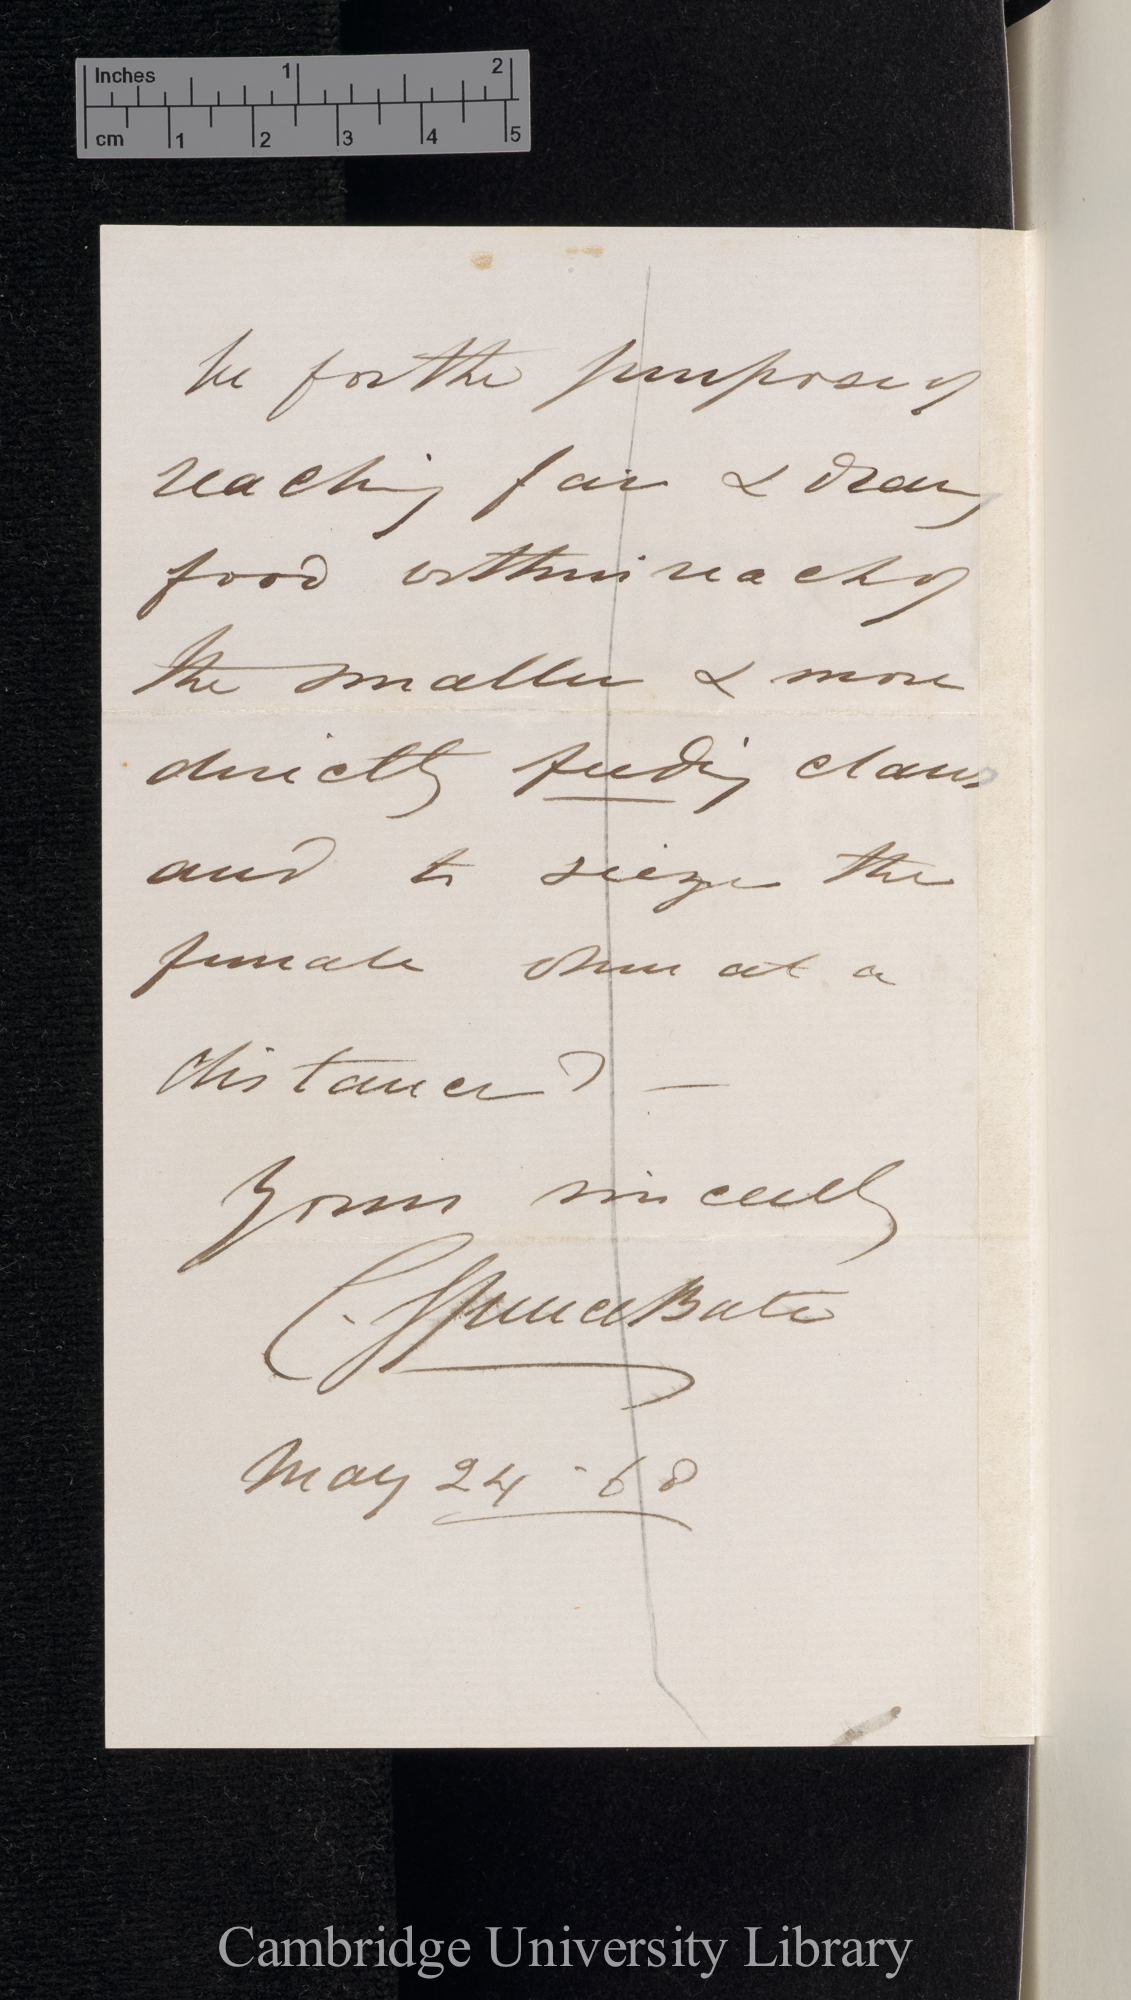 Inches 1 2
cm 1 2 3 4 5
be for the purpose of
reaching far & draw
food within reach of
the smaller & more
directly feeding claws
and to sieze the
female when at a
distance? —
Yours sincerely
C. Spence Bate
May 24 - 68
Cambridge University Library